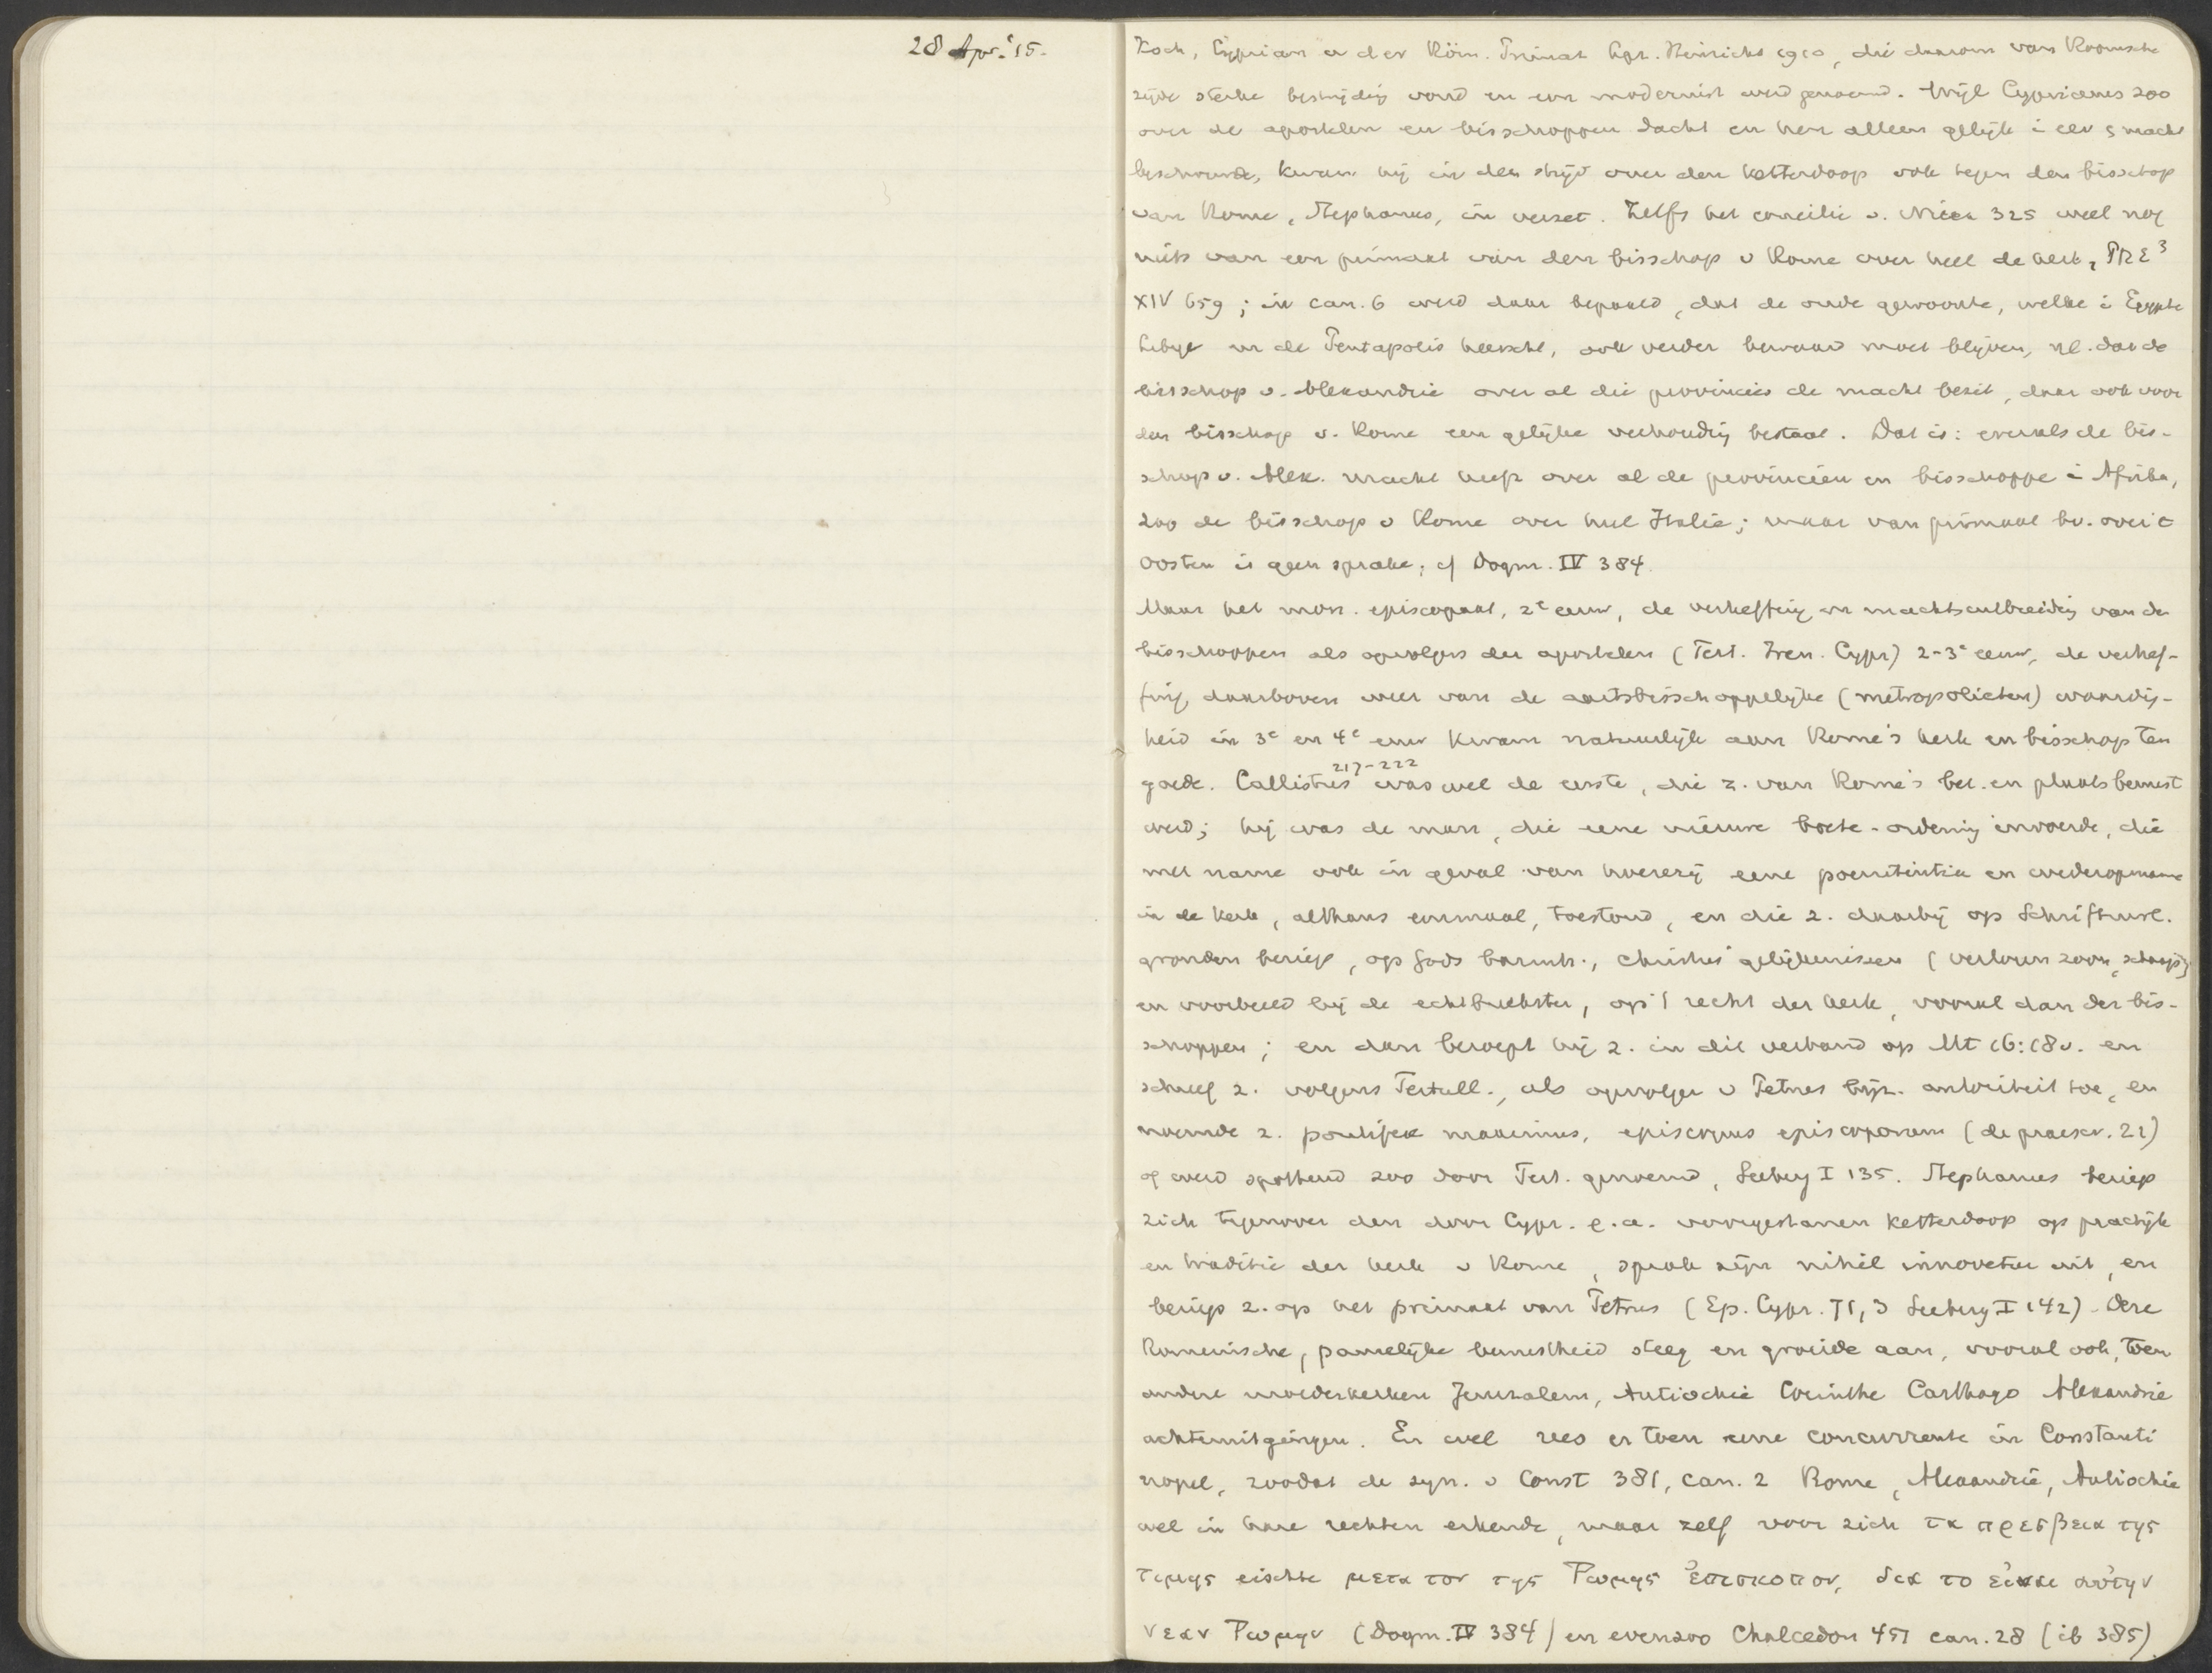 28 Apr. '15.
Koch, Cyprian u der Röm. Primat Lpz. Heinrichs 1910, die daarom van Roomsche
zijde sterke bestrijding vond en een modernist werd genoemd. Wijl Cyprianus zoo
over de apostelen en bisschoppen dacht en hen allen gelijk i eer & macht
beschouwde, kwam hij in den strijd over den ketterdoop ook tegen den bisschop
van Rome, Stephanus, in verzet. Zelfs het concilie v. Nicea 325 weet nog
niets van een primaat van den bisschop v Rome over heel de kerk, PRE³
XIV 659; in can. 6 werd daar bepaald, dat de oude gewoonte, welke i Egypte
Libye en de Pentapolis heerscht, ook verder bewaard moet blijven, nl. dat de
bisschop v. Alexandrie over al die provincies de macht bezit, daar ook voor
den bisschop v. Rome een gelijke verhouding bestaat. Dat is: evenals de bis-
schop v. Alex. macht heeft over al de provinciën en bisschoppe i Afrika,
zoo de bisschop v Rome over heel Italië; maar van primaat bv. over 't
Oosten is geen sprake; cf Dogm. IV 384
Maar het mon. episcopaat, 2e eeuw, de verheffing en machtsuitbreiding van de
bisschoppen als opvolgers der apostelen (Tert. Iren. Cypr) 2-3e eeuw, de verhef-
fing, daarboven weer van de aartsbisschoppelijke (metropolieten) waardig-
heid in 3e en 4e eeuw kwam natuurlijk aan Rome's kerk en bisschop ten
goede. Callistus 217-222 was wel de eerste, die z. van Rome's bet. en plaats bewust
werd; hij was de man, die eene nieuwe boete-ordening invoerde, die
met name ook in geval van hoererij eene poenitentia en wederopname
in de kerk, althans eenmaal, toestond, en die z. daarbij op Schriftuurl.
gronden beriep, op Gods barmh., Christus' gelijkenissen (verloren zoon, schaap)
en voorbeeld bij de echtbreekster, op 't recht der kerk, vooral dan der bis-
schoppen; en dan beroept hij z. in dit verband op Mt 16:18v. en
schreef z. volgens Tertull., als opvolger v Petrus bijz. autoriteit toe, en
noemde z. pontifex maximus, episcopus episcoporum (de praescr. 21)
of werd spottend zoo door Tert. genoemd, Seeberg I 135. Stephanus beriep
zich tegenover den door Cypr. e.a. voorgestanen ketterdoop op practijk
en traditie der kerk v Rome, sprak zijn nihil innovetur uit, en
beriep z. op het primaat van Petrus (Ep. Cypr. 71, 3 Seeberg I 142). Deze
Romeinsche, pauselijke bewustheid steeg en groeide aan, vooral ook, toen
andere moederkerken Jeruzalem, Antiochie Corinthe Carthago Alexandrie
achteruitgingen. En wel rees er toen eene concurrente in Constanti
nopel, zoodat de syn. v Const 381, can. 2 Rome, Alexandrië, Antiochie
wel in hare rechten erkende, maar zelf voor zich τα πρεσβεια της
τιμης eischte μετα τον της Ρωμης ἐπισκοπον, δια το εἰναι αὐτην
νεαν Ρωμην (Dogm. IV 384) en evenzoo Chalcedon 451 can. 28 (ib 385).